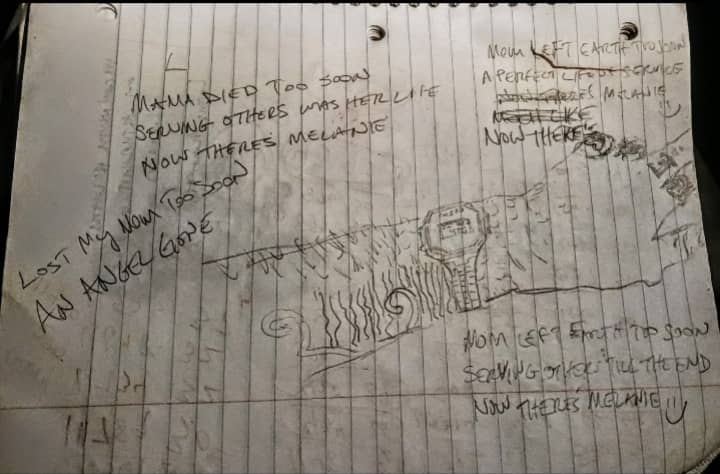 MAMA DIED TOO SOON
SERVING OTHERS WAS HER LIFE
NOW THERES MELANIE
MOM LEFT EARTH TOO SOON
A PERFECT LIFE OF SERVICE
MELANIE
LIKE
NOW THERE'S
LOST MY MOM TOO SOON
AN ANGEL GONE
MOM LEFT EARTH TOO SOON
SERVING OTHERS TILL THE END
NOW THERE'S MELANIE